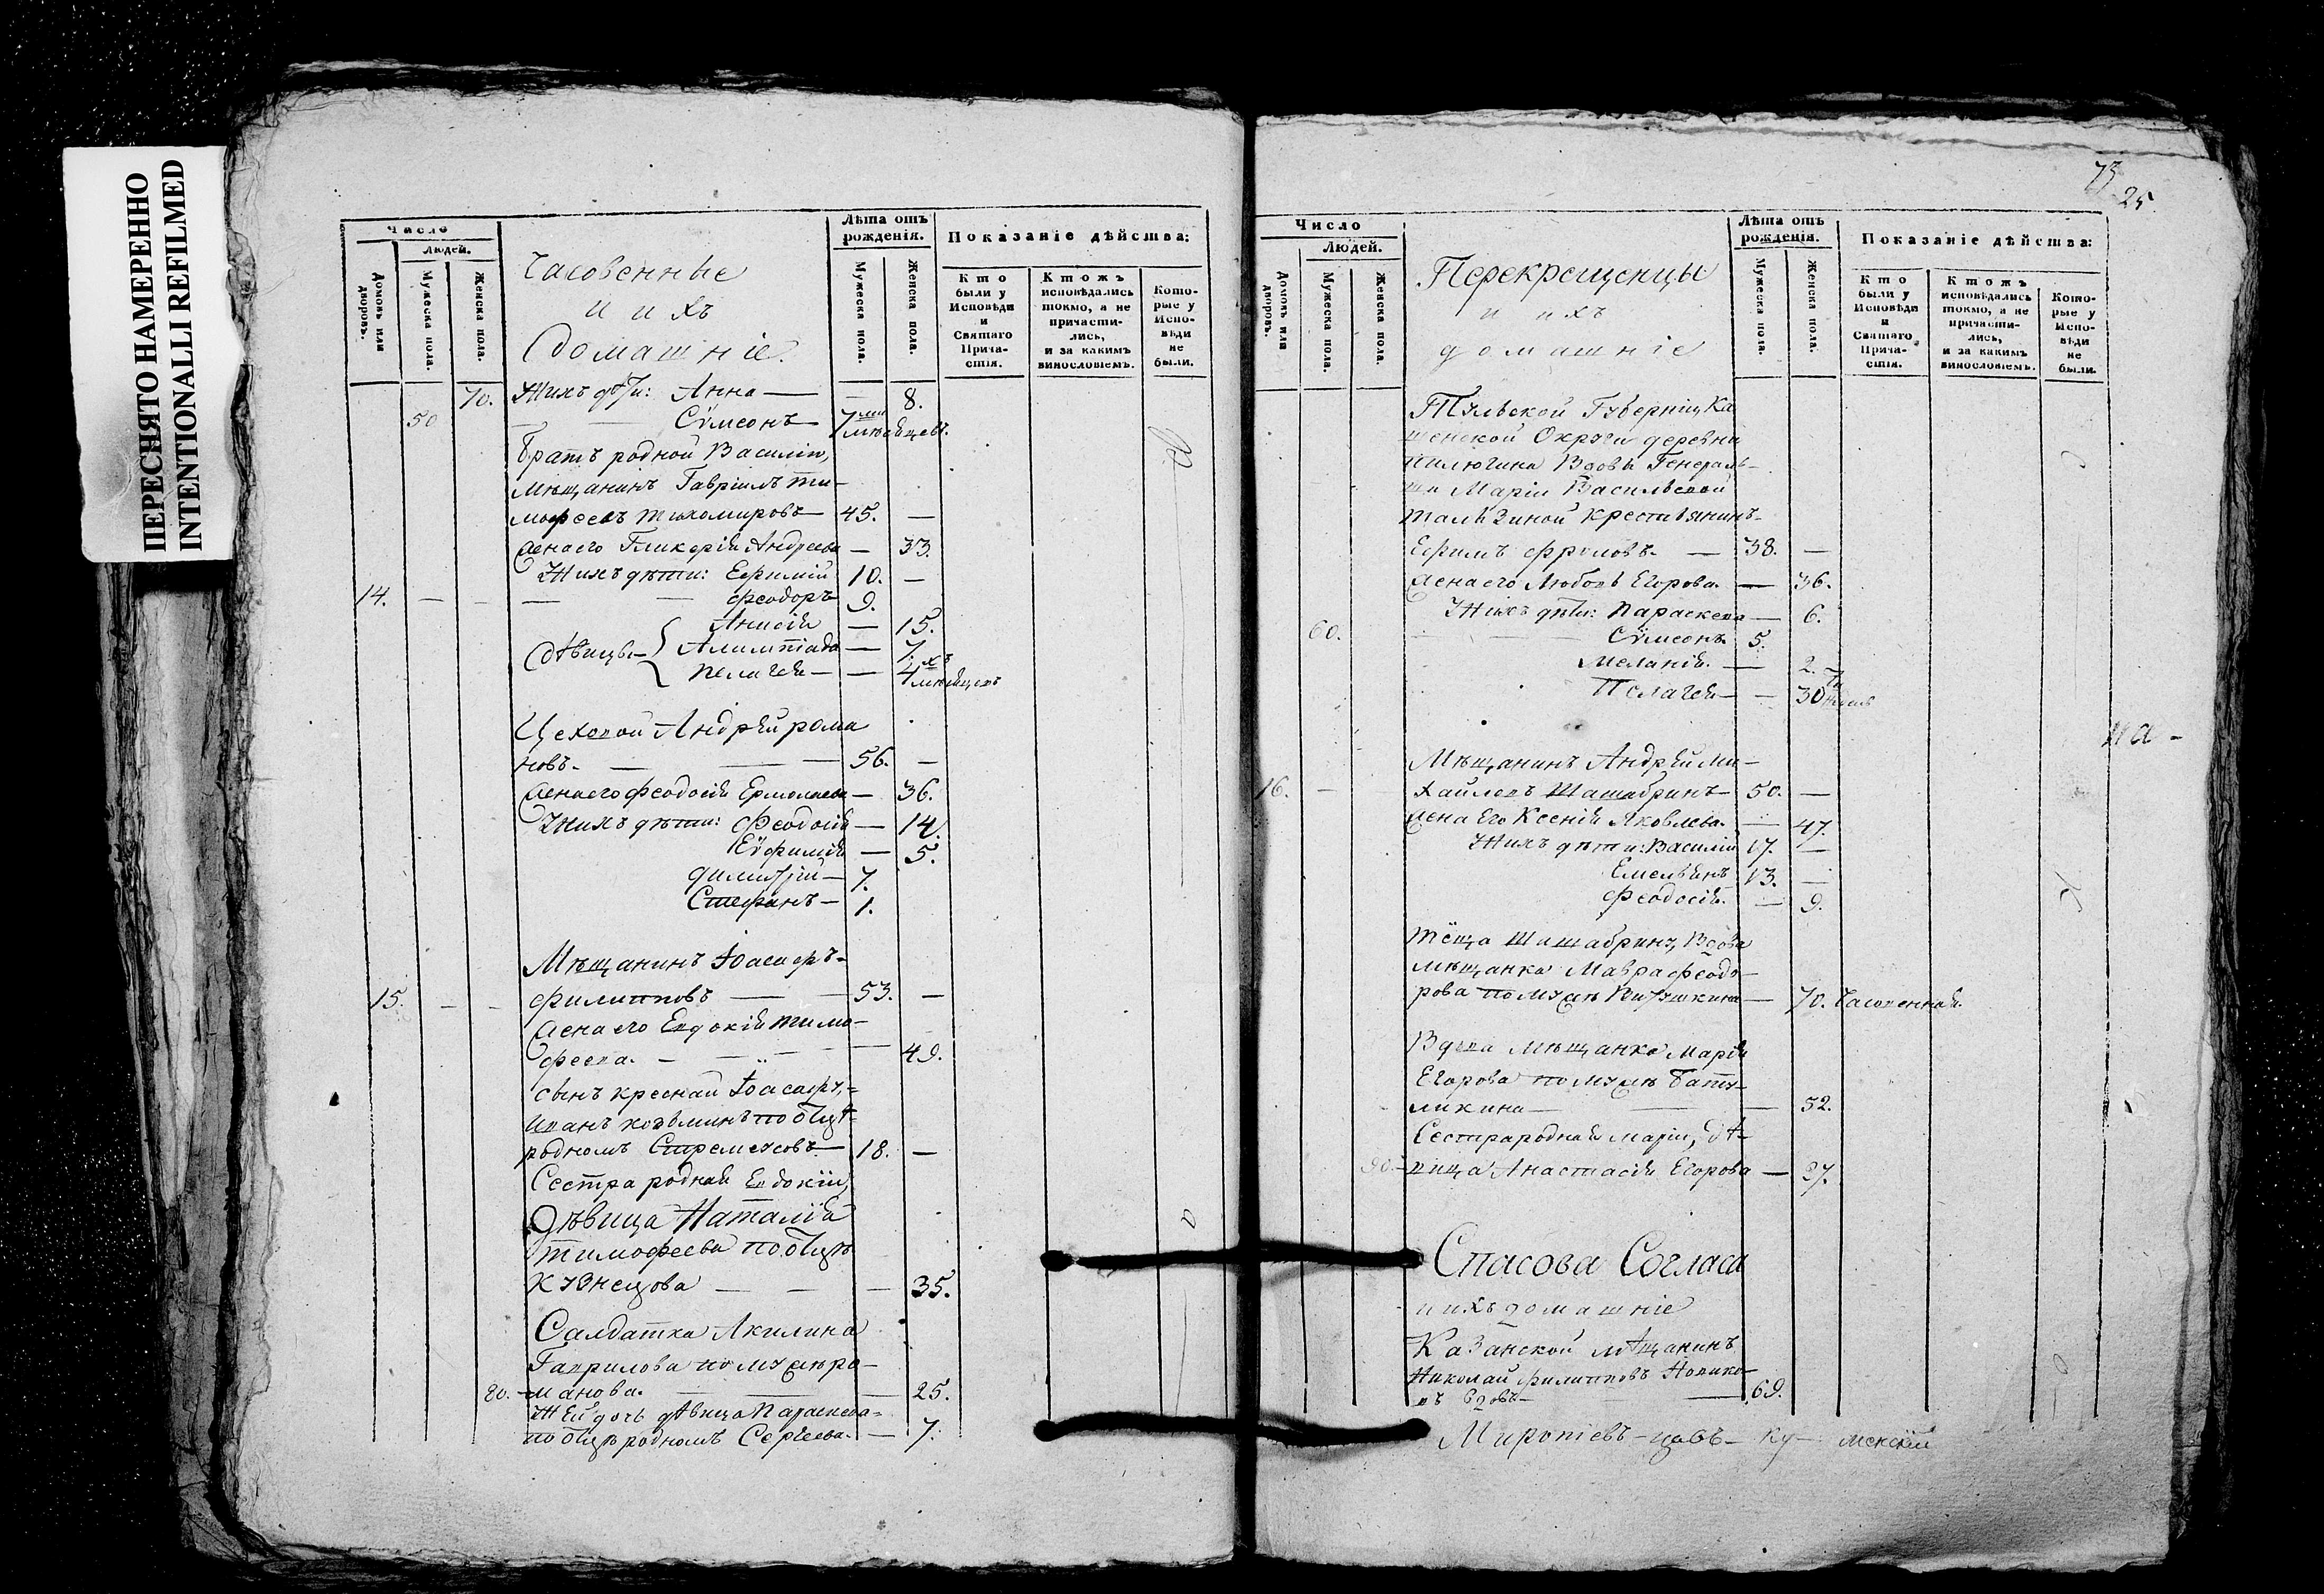 ПЕРЕСНЯТО НАМЕРЕННО
INTENTIONALLI REFILMED
Число
Людей.
Домовъ или дворовъ.
Мужеска пола.
Женска пола.
Часовенные
и ихъ
Домашніе.
Лѣта отъ рожденія.
Мужеска пола.
Женска пола.
Показаніе дѣйства:
Кто были у Исповѣди и Святаго Прича- стія.
Ктожъ исповѣдались токмо, а не причасти- лись, и за какимъ винословіемъ.
Кото- рые у Испо- вѣди не были.
70. Ихъ дѣти: Анна — — 8.
50 Сѵмеонъ 7ми мѣсяцевъ.
Братъ родной Василія,
Мѣщанинъ Гавріилъ Ти-
мофеевъ Тихомировъ — 45. —
Жена его Гликерія Андреева — 33.
Ихъ дѣти: Ефимій 10. —
14. — — Феодоръ 9.
Анисія — 15.
Дѣвицы — Алимпіада — 7.
Пелагея — — 4хъ мѣсяцевъ
Цеховой Андрей Рома
новъ. — — 56. —
Жена его Феодосія Ермолаева — 36.
Ихъ дѣти: Феодосія — 14.
Еѵфимія — 5.
Димитрій — 7.
Стефанъ — 1.
Мѣщанинъ Іоасафъ
15. — — Филипповъ — — 53. —
Жена его Евдокія Тимо-
феева. — — — 49.
Сынъ креснай Іоасафу,
Иванъ Козьминъ по отцѣ
родномъ Стремоусовъ — 18. —
Сестра родная Евдокіи,
Дѣвица Наталія
Тимофеева по отцѣ
Кузнецова — — — 35.
Салдатка Акилина
Гаврилова по мужѣ Ро-
80. — манова. — — 25.
Ея дочь дѣвица Параскева
по отцѣ родномъ Сергеева. — 7.
73
25.
Число
Людей.
Домовъ или дворовъ.
Мужеска пола.
Женска пола.
Перекрещенцы
и ихъ
домашніе
Лѣта отъ рожденія.
Мужеска пола.
Женска пола.
Показаніе дѣйства:
Кто были у Исповѣди и Святаго Прича- стія.
Ктожъ исповѣдались токмо, а не причасти- лись, и за какимъ винословіемъ.
Кото- рые у Испо- вѣди не были.
Тульской Губерніи Ка
шенской Округи деревни
Пилюгина Вдовы Генераль-
ши Маріи Васильевой
Талызиной крестьянинъ
Ефимъ Фроловъ. — 38. —
Жена его Любовь Егорова. — 36.
Ихъ дѣти: Параскева — 6.
60. Сѵмеонъ 5.
Меланія. — 2.
Пелагея — — 30
Мѣщанинъ Андрей Ми-
16. — хайловъ Шашабринъ — 50. —
Жена Его Ксенія Яковлева. — 47.
Ихъ дѣти: Василій 17. —
Емельянъ 13. —
Феодосія. — 9.
Тёща Шашабрину, Вдова
мѣщанка Мавра Феодо-
рова по мужѣ — 70. Часовенная.
Вдова Мѣщанка Марія
Егорова по мужѣ Бату-
ликина — — 52.
Сестра родная Маріи, дѣ-
90. — вица Анастасія Егорова — 27.
на —
Спасова Согласа
и ихъ домашніе
Казанской мѣщанинъ
Николай Филипповъ Новико-
въ вдовъ — — 69.